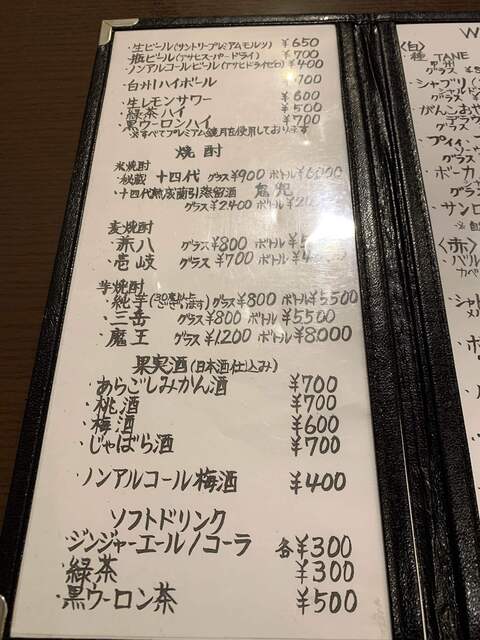 ・生ビール(サントリープレミアムモルツ) ¥650
・瓶ビール(アサヒスーパードライ) ¥700
・ノンアルコールビール(アサヒドライゼロ) ¥400
・白州ハイボール ¥700
・生レモンサワー ¥600
・緑茶ハイ ¥500
・黒ウーロンハイ ¥700
※すべてプレミアム鏡月を使用しております
焼酎
米焼酎
・秘蔵 十四代 グラス¥900 ボトル
・十四代熟成蘭引蒸留酒 鬼兜
グラス¥2,400 ボトル
麦焼酎
・兼八 グラス¥800 ボトル
・壱岐 グラス¥700 ボトル
芋焼酎
・純芋 グラス¥800 ボトル¥5500
・三岳 グラス¥800 ボトル¥5500
・魔王 グラス¥1,200 ボトル¥8000
果実酒(日本酒仕込み)
・あらごしみかん酒 ¥700
・桃酒 ¥700
・梅酒 ¥600
・じゃばら酒 ¥700
・ノンアルコール梅酒 ¥400
ソフトドリンク
・ジンジャーエール/コーラ 各¥300
・緑茶 ¥300
・黒ウーロン茶 ¥500
W
<白>
・種 TANE
甲州
グラス
・シャブリ
・がんこおや
デラウ
グラス
・ボーカ
グラス
・サンロ
<赤>
・バル
カベ
・シャト
メル